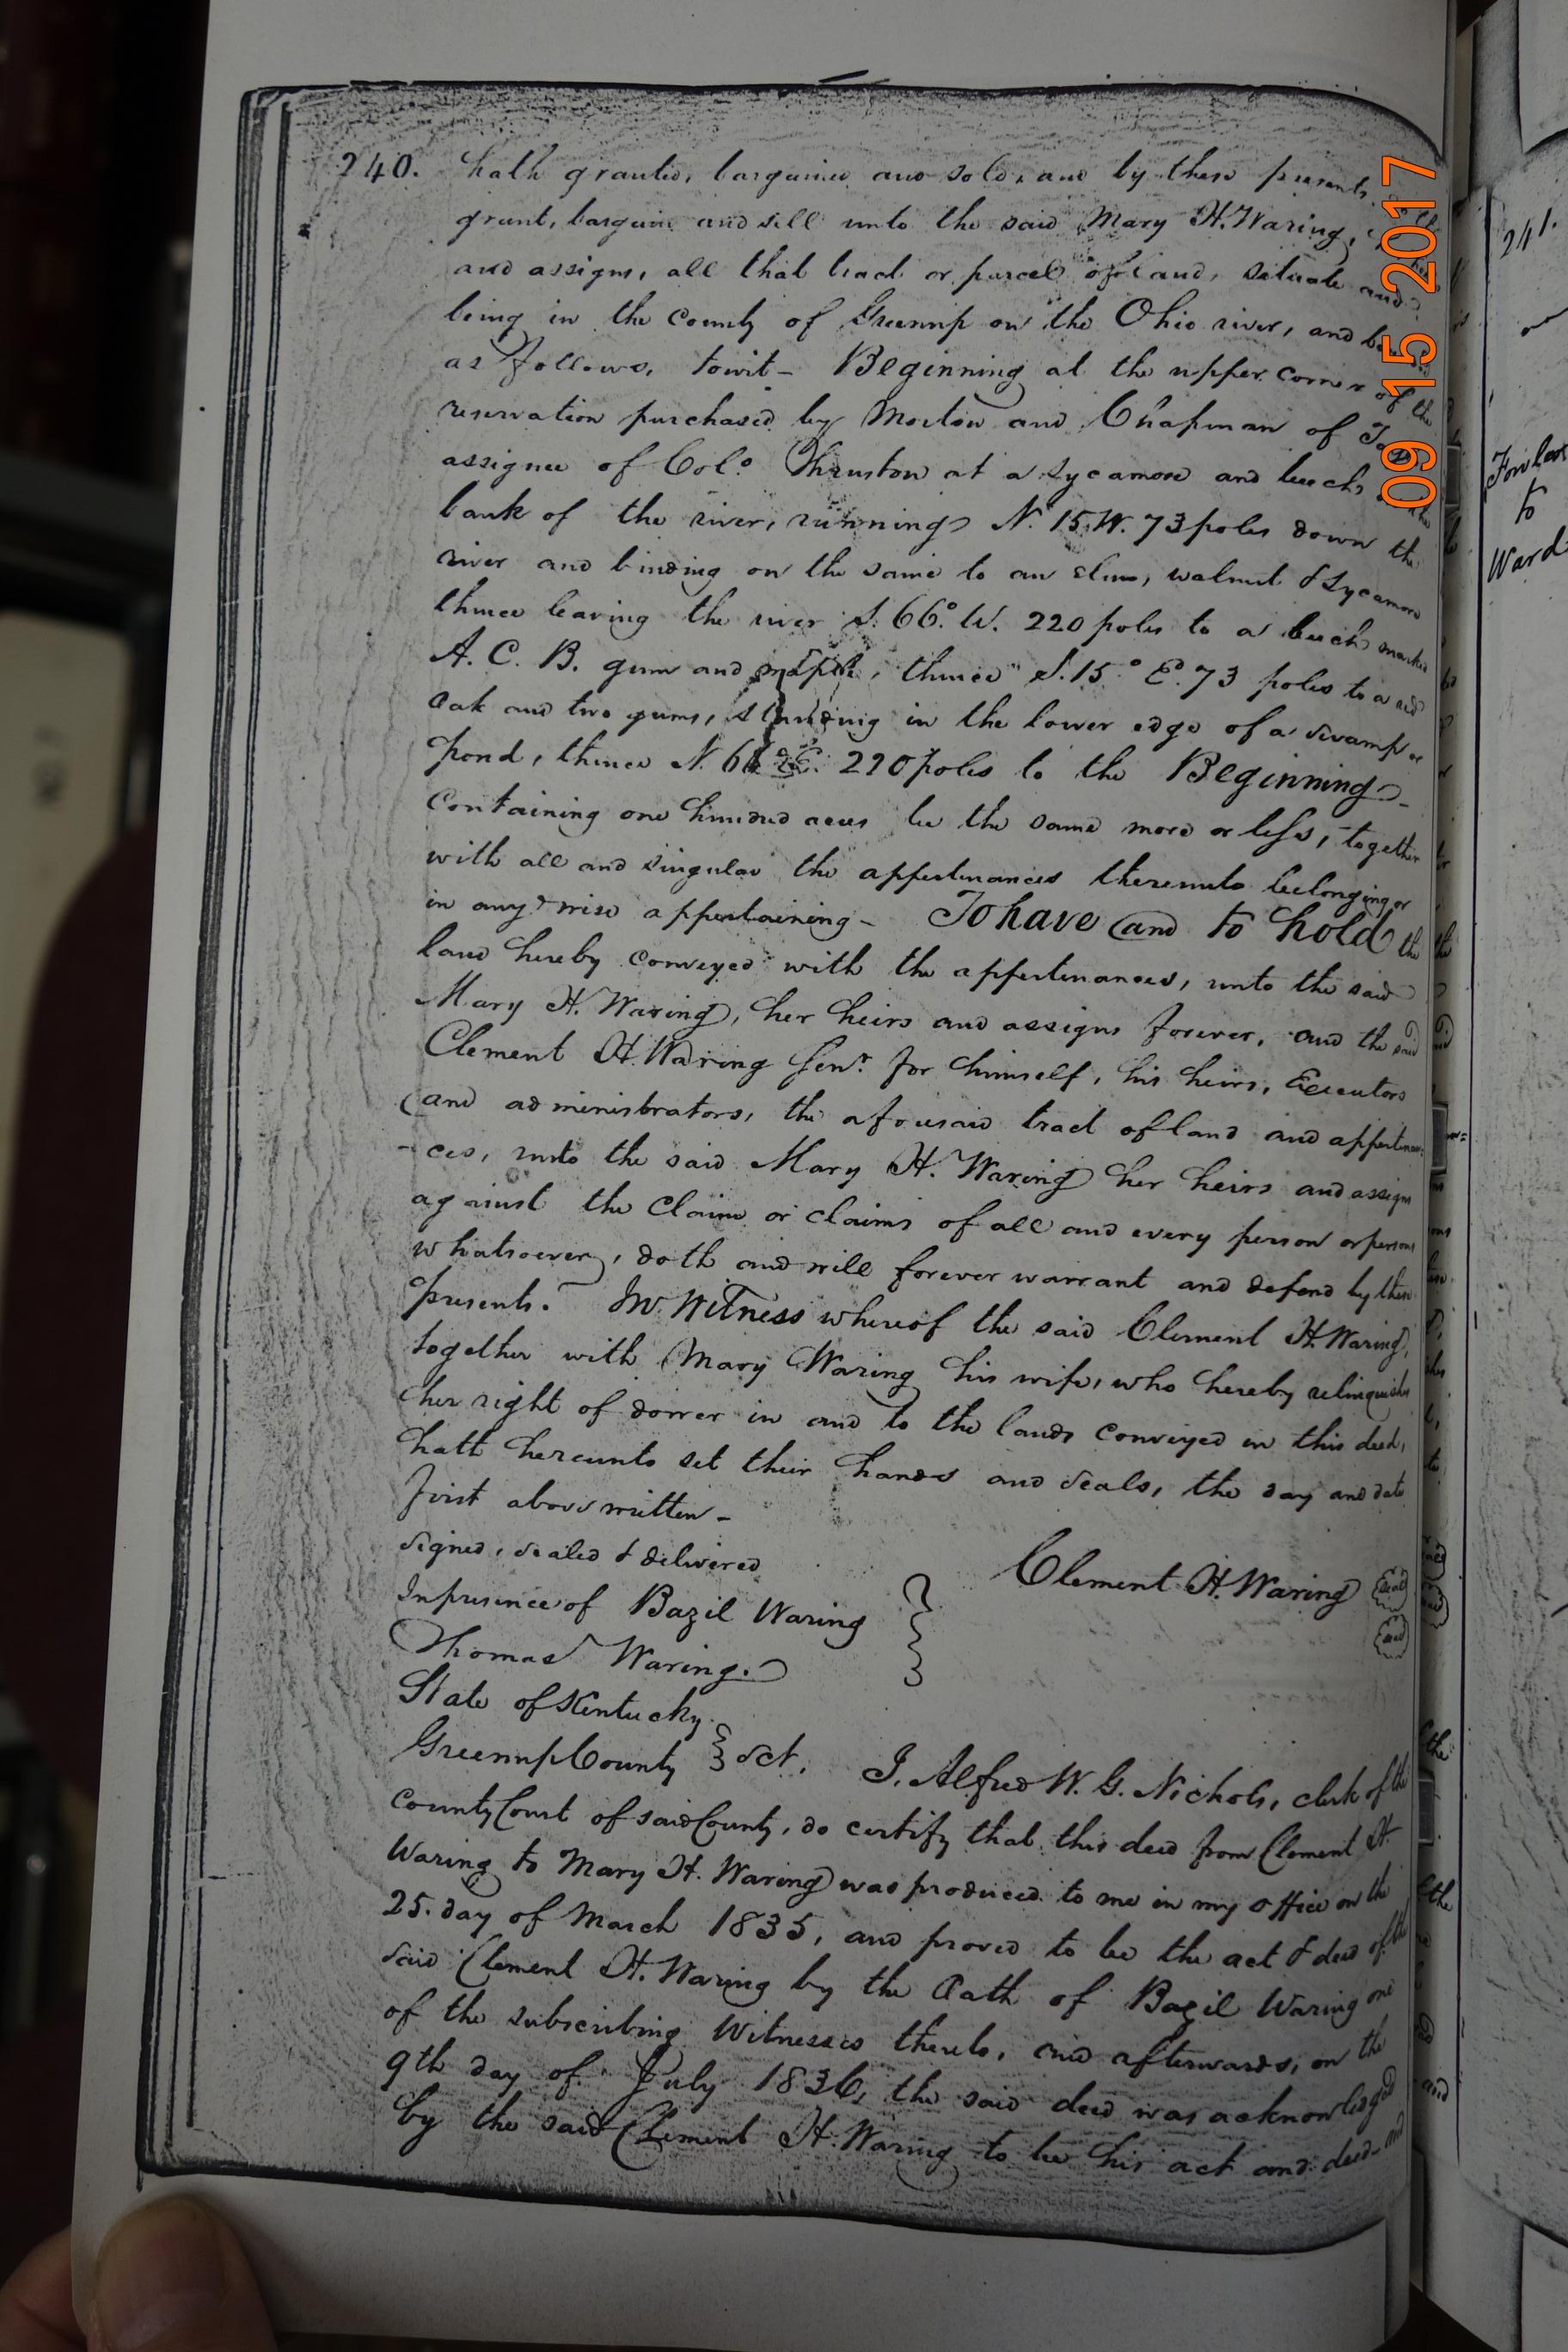 240. hath granted, bargained and sold, and by these presents
grant, bargain and sell unto the said Mary H. Waring,
and assigns, all that tract or parcel of land, situate and
being in the County of Greenup on the Ohio river, and
as follows, towit - Beginning at the upper corner of the
reservation purchased by Morton and Chapman of
assignee of Colo. Thruston at a sycamore and beech, the
bank of the river, running N. 15. W. 73 poles down the
river and binding on the same to an Elm, walnut & Sycamore
thence leaving the river S. 66° W. 220 poles to a beech marked
A. C. B. gum and maple, thence S. 15° E. 73 poles to a red
oak and two gums, standing in the lower edge of a swamp or
pond, thence N. 66 E. 220 poles to the Beginning -
Containing one hundred acres be the same more or less, together
with all and singular the appertenances thereunto belonging or
in any wise appertaining - To have and to hold the
land hereby conveyed with the appertenances, unto the said
Mary H. Waring, her heirs and assigns forever, and the said
Clement H. Waring Senr. for himself, his heirs, Executors
and administrators, the aforesaid tract of land and appertenan
-ces, unto the said Mary H. Waring her heirs and assigns
against the Claim or claims of all and every person or persons
whatsoever, doth and will forever warrant and defend by these
presents. In Witness whereof the said Clement H. Waring,
together with Mary Waring his wife, who hereby relinquishes
her right of dower in and to the lands conveyed in this deed,
hath hereunto set their hands and seals, the day and date
first above written -
Signed, sealed & delivered
In presence of Bazil Waring
Clement H. Waring seal
seal
Thomas Waring.
State of Kentucky
Greenup County } Sct. I, Alfred W. G. Nichols, clerk of the
County Court of said County, do certify that this deed from Clement H.
Waring to Mary H. Waring was produced to me in my office on the
25. day of March 1835, and proved to be the act & deed of the
said Clement H. Waring by the Oath of Bazil Waring one
of the subscribing Witnesses thereto, and afterwards, on the
9th day of July 1836, the said deed was acknowledged
by the said Clement H. Waring to be his act and deed - and
241.
Fowler
to
Ward
09 15 2017